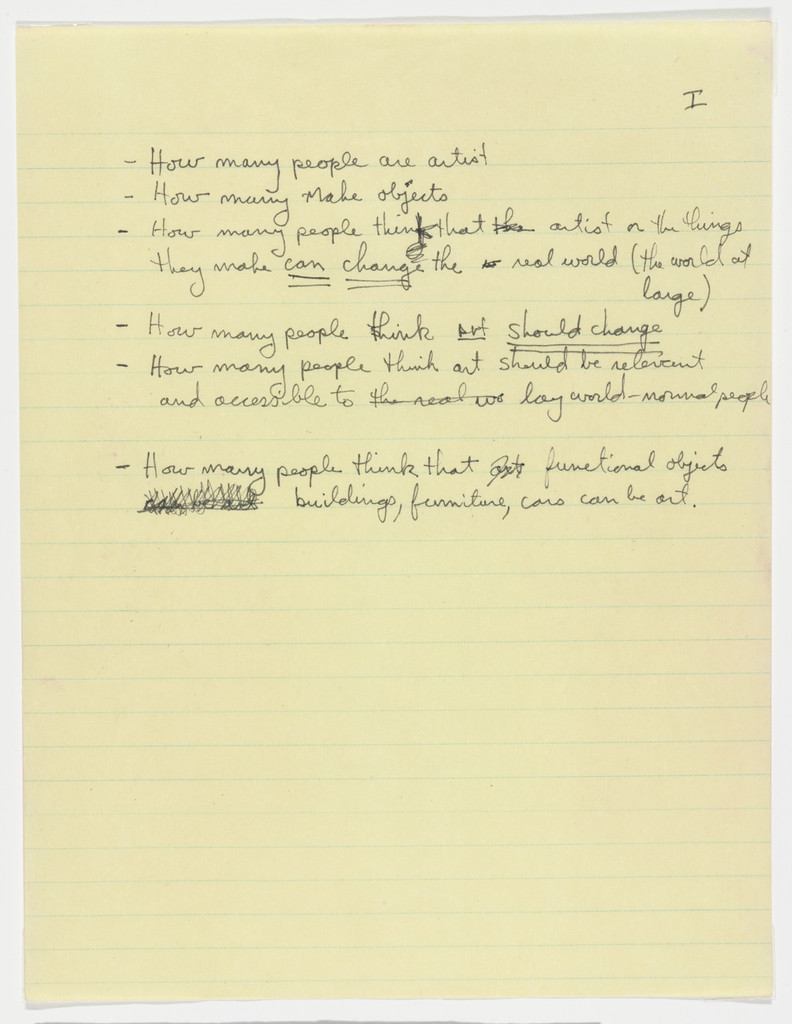 I
- How many people are artist
- How many make objects
- How many people think that the artist or the things
they make can change the real world (the world at
large)
- How many people think art should change
- How many people think art should be relevent
and accessible to the real wo lay world - normal people
- How many people think that functional objects
buildings, furniture, cars can be art.